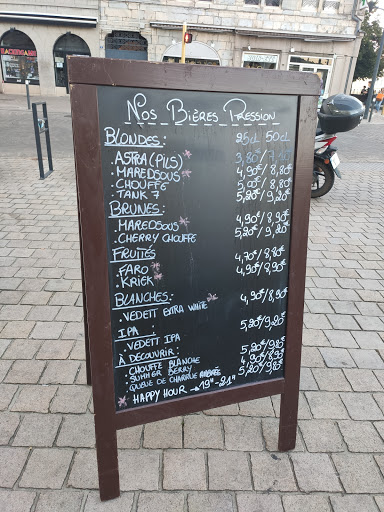 Nos Bières Pression
BLONDES: 25cl 50cl
. ASTRA (PILS) * 3,80€/7,
. MAREDSOUS * 4,90€/8,80€
. CHOUFFE 5,00€/8,80€
. TANK 7 5,20€/9,20€
BRUNES:
. MAREDSOUS * 4,90€/8,90€
. CHERRY CHOUFFE 5,20€/9,20€
FRUITÉS
. FARO * 4,70€/8,80€
. KRIEK * 4,90€/8,90€
BLANCHES:
. VEDETT EXTRA WHITE * 4,90€/8,90€
IPA:
. VEDETT IPA 5,20€/9,20€
À DÉCOUVRIR:
. CHOUFFE BLANCHE 5,20€/9,20€
. SUMMER BERRY 4,90€/8,90€
. QUEUE DE CHARRUE AMBRÉE 5,20€/9,20€
* HAPPY HOUR → 19H-21H